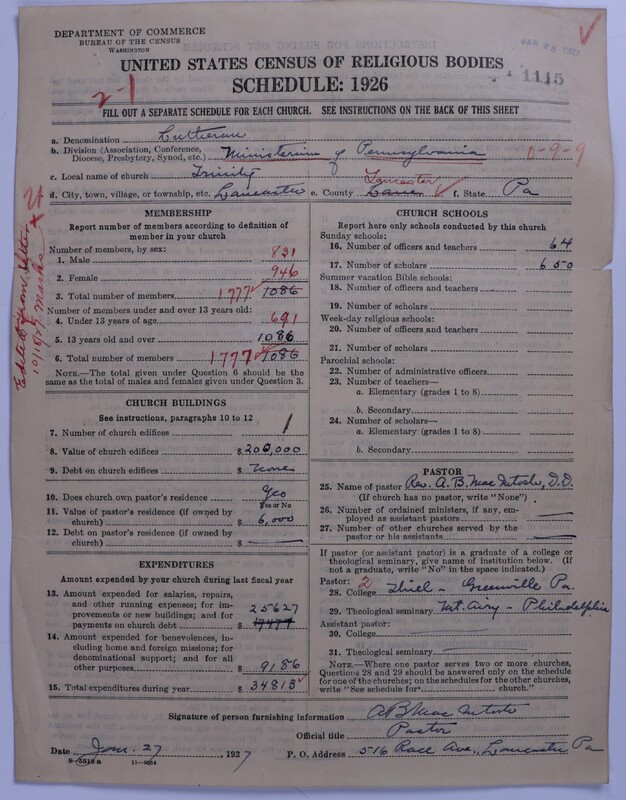 DEPARTMENT OF COMMERCE
BUREAU OF THE CENSUS
WASHINGTON
UNITED STATES CENSUS OF RELIGIOUS BODIES
1115
SCHEDULE: 1926
2-1
FILL OUT A SEPARATE SCHEDULE FOR EACH CHURCH. SEE INSTRUCTIONS ON THE BACK OF THIS SHEET
a. Denomination Lutheran
b. Division (Association, Conference, Diocese, Presbytery, Synod, etc.) Ministerium of Pennsylvania 0-9-9
c. Local name of church Trinity
d. City, town, village, or township, etc. Lancaster e. County Lanc Lancaster f. State Pa
Edited from letter
10/18/27
MEMBERSHIP
Report number of members according to definition of
member in your church
Number of members, by sex:
1. Male 831
2. Female 946
3. Total number of members 1777 1086
Number of members under and over 13 years old:
4. Under 13 years of age 691
5. 13 years old and over 1086
6. Total number of members 1777 1086
NOTE.—The total given under Question 6 should be the
same as the total of males and females given under Question 3.
CHURCH BUILDINGS
See instructions, paragraphs 10 to 12
7. Number of church edifices 1
8. Value of church edifices $ 200,000
9. Debt on church edifices $ none
10. Does church own pastor's residence Yes
Yes or No
11. Value of pastor's residence (if owned by
church) $ 6,000
12. Debt on pastor's residence (if owned by
church) $
EXPENDITURES
Amount expended by your church during last fiscal year
13. Amount expended for salaries, repairs,
and other running expenses; for im-
provements or new buildings; and for
payments on church debt $ 25627
14. Amount expended for benevolences, in-
cluding home and foreign missions; for
denominational support; and for all
other purposes $ 9186
15. Total expenditures during year $ 34813
CHURCH SCHOOLS
Report here only schools conducted by this church
Sunday schools:
16. Number of officers and teachers 64
17. Number of scholars 650
Summer vacation Bible schools:
18. Number of officers and teachers
19. Number of scholars
Week-day religious schools:
20. Number of officers and teachers
21. Number of scholars
Parochial schools:
22. Number of administrative officers
23. Number of teachers—
a. Elementary (grades 1 to 8)
b. Secondary
24. Number of scholars—
a. Elementary (grades 1 to 8)
b. Secondary
PASTOR
25. Name of pastor Rev. A. B. Mac Intosh, D.D.
(If church has no pastor, write "None")
26. Number of ordained ministers, if any, em-
ployed as assistant pastors
27. Number of other churches served by the
pastor or his assistants
If pastor (or assistant pastor) is a graduate of a college or
theological seminary, give name of institution below. (If
not a graduate, write "No" in the space indicated.)
Pastor: 2
28. College Thiel - Greenville Pa.
29. Theological seminary Mt. Airy - Philadelphia
Assistant pastor:
30. College
31. Theological seminary
NOTE.—Where one pastor serves two or more churches,
Questions 28 and 29 should be answered only on the schedule
for one of the churches; on the schedules for the other churches,
write "See schedule for church."
Signature of person furnishing information A B Mac Intosh
Official title Pastor
Date Jan. 27, 1927 P. O. Address 516 Race Ave., Lancaster Pa
8-5518a 11-9554